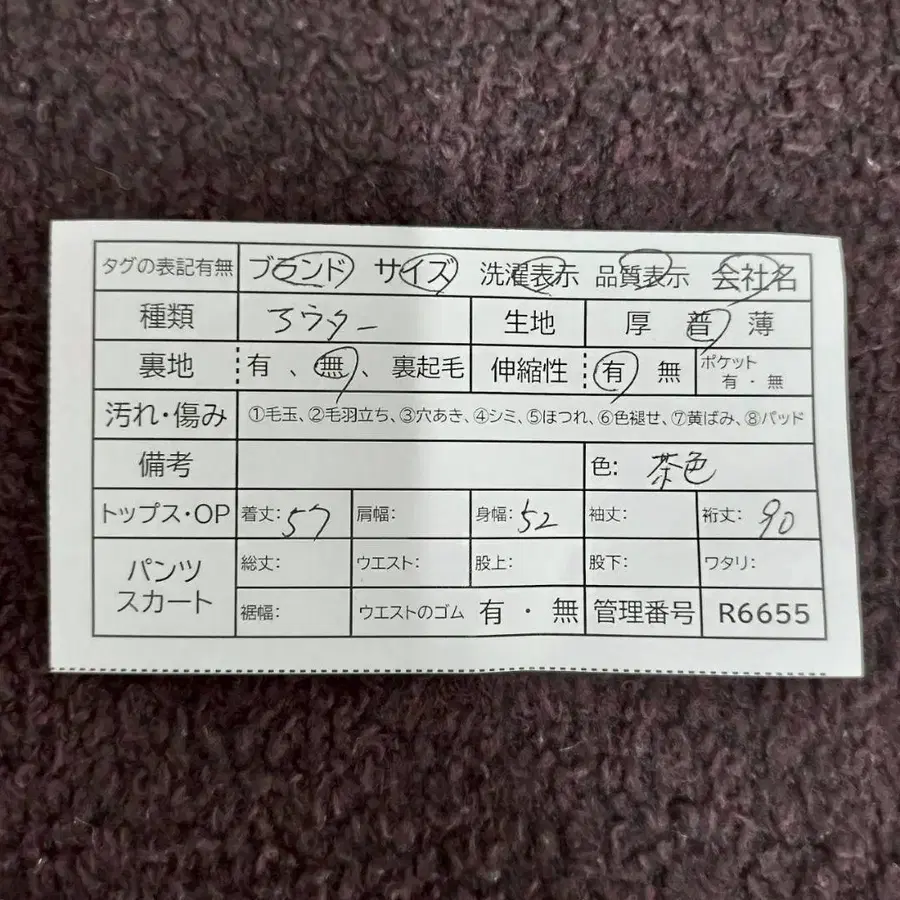 タグの表記有無 ブランド サイズ 洗濯表示 品質表示 会社名
種類 アウター 生地 厚 普 薄
裏地 有 、 無 、 裏起毛 伸縮性 有 無 ポケット 有 ・ 無
汚れ・傷み ①毛玉、②毛羽立ち、③穴あき、④シミ、⑤ほつれ、⑥色褪せ、⑦黄ばみ、⑧パッド
備考 色: 茶色
トップス・OP 着丈: 57 肩幅: 身幅: 52 袖丈: 裄丈: 90
パンツ スカート 総丈: ウエスト: 股上: 股下: ワタリ:
裾幅: ウエストのゴム 有 ・ 無 管理番号 R6655